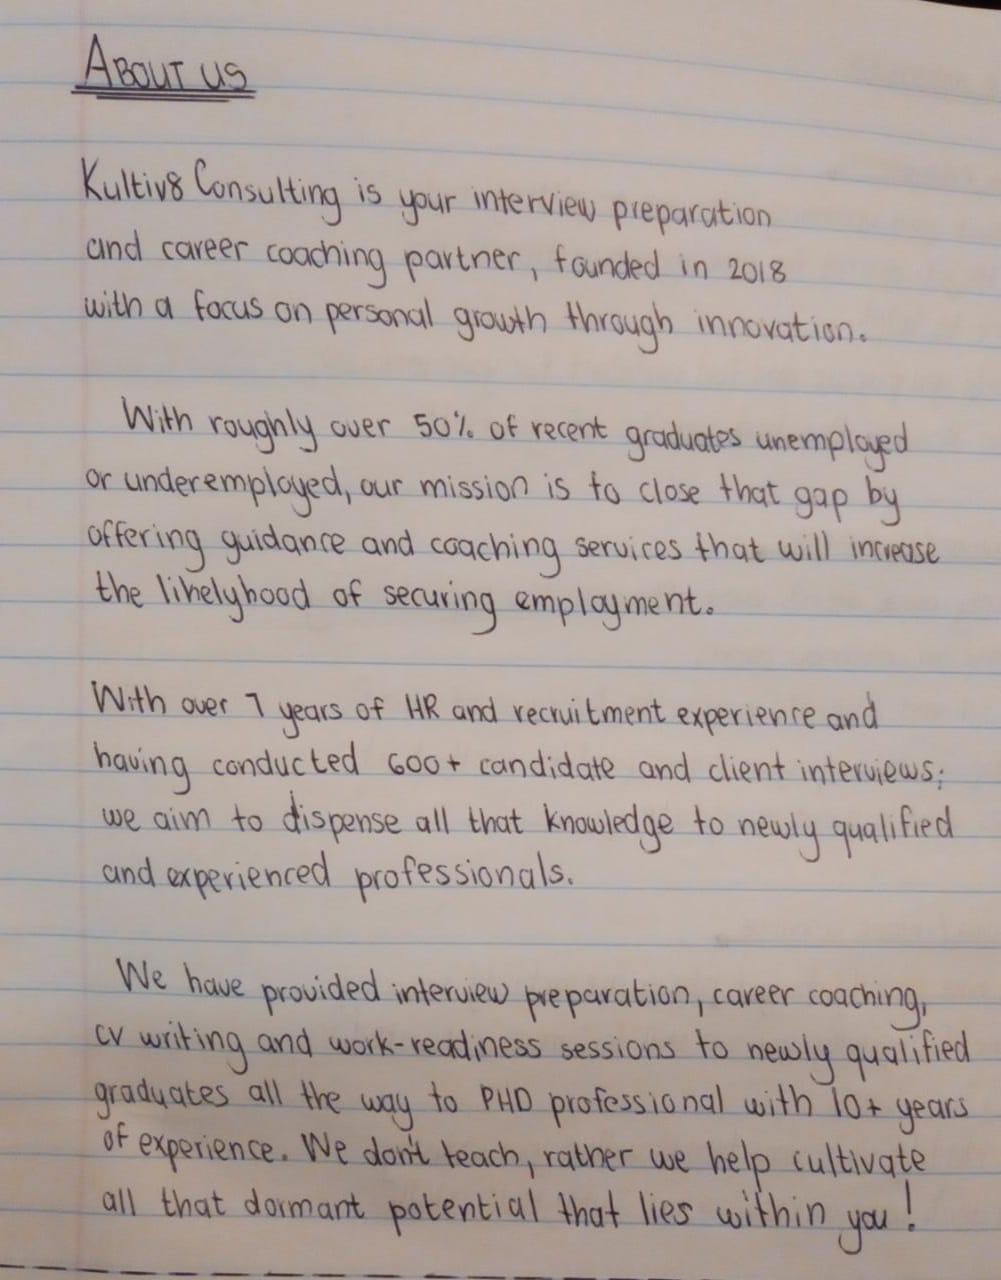 ABOUT US
Kultiv8 Consulting is your interview preparation
and career coaching partner, founded in 2018
with a focus on personal growth through innovation.
With roughly over 50% of recent graduates unemployed
or underemployed, our mission is to close that gap by
offering guidance and coaching services that will increase
the likelyhood of securing employment.
With over 7 years of HR and recruitment experience and
having conducted 600+ candidate and client interviews;
we aim to dispense all that knowledge to newly qualified
and experienced professionals.
We have provided interview preparation, career coaching,
CV writing and work-readiness sessions to newly qualified
graduates all the way to PHD professional with 10+ years
of experience. We don't teach, rather we help cultivate
all that dormant potential that lies within you!